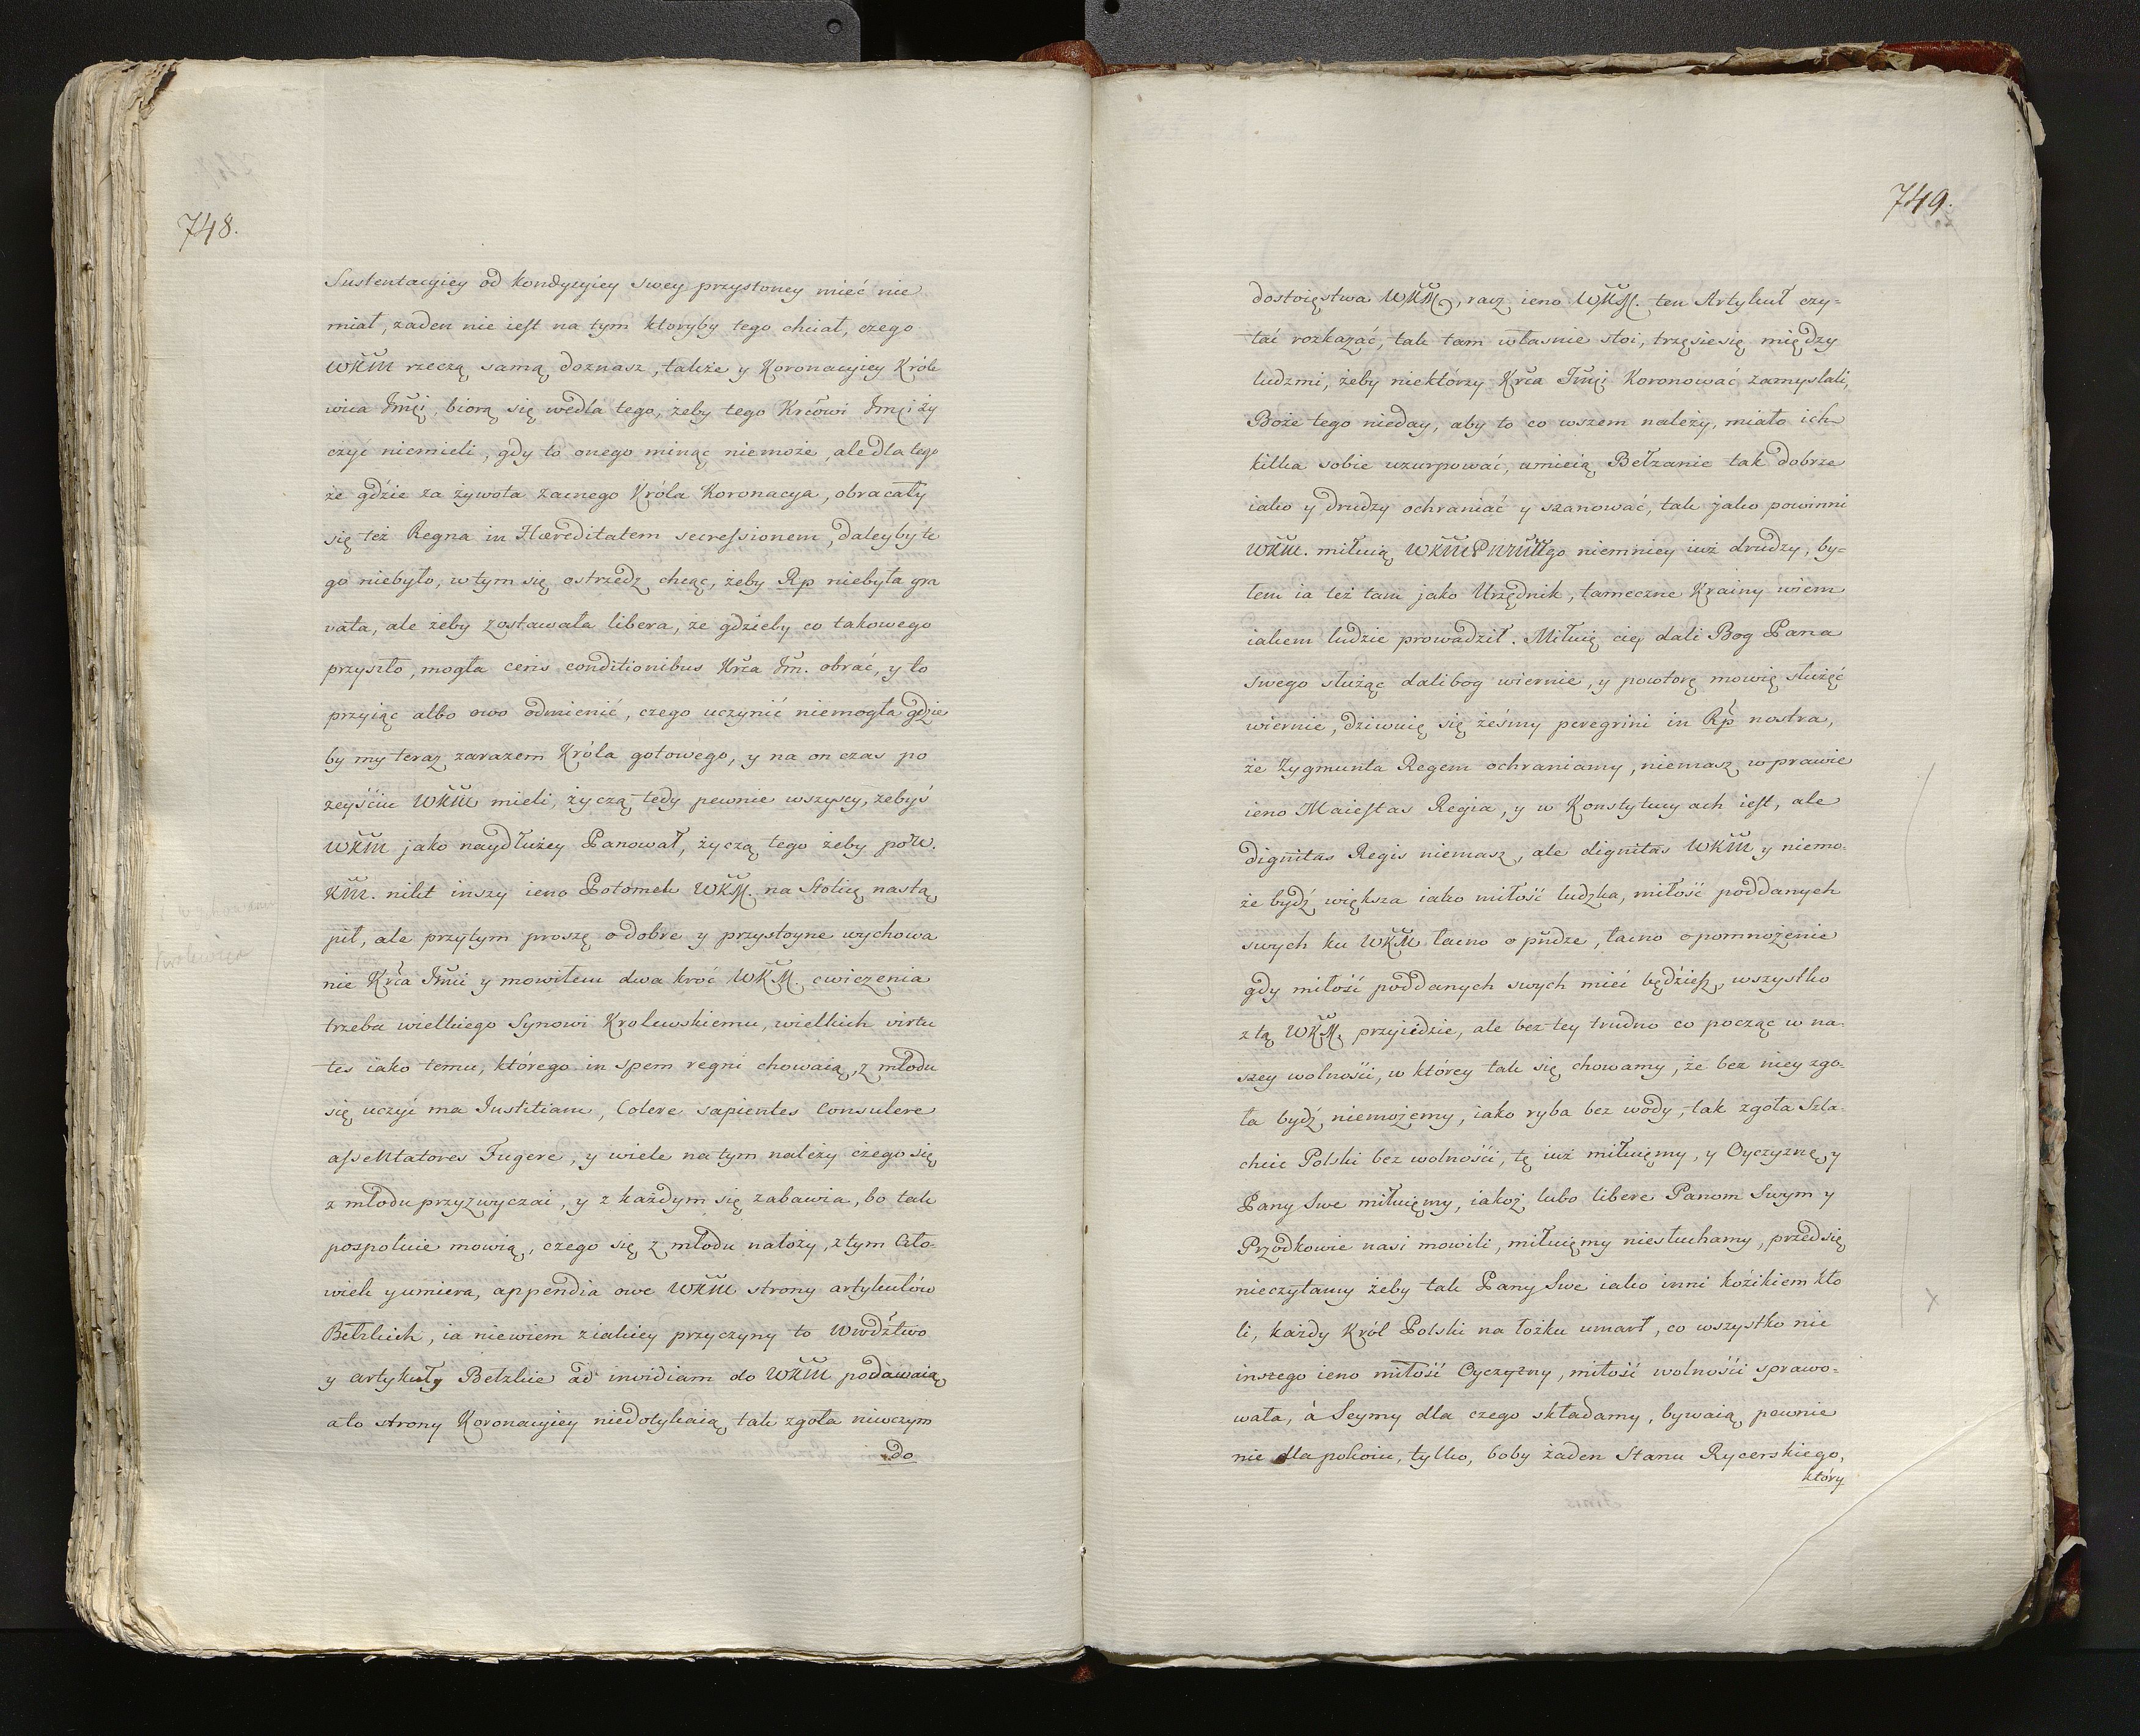 748.
Sustentacyiey od kondycyiey swey przystoney mieć nie
miał, żaden nie iest na tym ktoryby tego chciał, czego
WKM rzeczą samą doznasz, także y Koronacyiey Króle
wica Jmći, biorą się wedla tego, żeby tego Krćowi Jmći ży
czyć niemieli, gdy to onego minąć niemoże, ale dla tego
że gdzie za żywota zacnego Króla Koronacya, obracały
się też Regna in Hæreditatem secressionem, daley by te
go niebyło, w tym się ostrzedz chcąc, żeby Rp niebyła gra
vata, ale żeby zostawała libera, że gdzieby co takowego
przyszło, mogła ceris conditionibus Krća Jm. obrać, y to
przyiąc albo owo odmienić, czego uczynić niemogła gdzie
by my teraz zarazem Króla gotowego, y na on czas po
zeyściu WKM mieli, życzą tedy pewnie wszyscy, żebyś
WKM jako naydłużey Panował, życzą tego żeby po W.
KM. nikt inszy ieno Potomek WKM. na Stolicę nastą
pił, ale przytym proszę o dobre y przystoyne wychowa
nie Krća Jmći y mowiłem dwa kroć WKM. cwiczenia
trzeba wielkiego Synowi Krolewskiemu, wielkich virtu
tes iako temu, którego in spem regni chowaią, z młodu
się uczyć ma Justitiam, Colere sapientes Consulere
assektatores Fugere, y wiele na tym należy czego się
z młodu przyzwyczai, y z każdym się zabawia, bo tak
pospolicie mowią, czego się z młodu nałoży, z tym Czło-
wiek y umiera, appendia owe WKM strony artykułów
Bełzkich, ia niewiem ziakiey przyczyny to Wwdźtwo
y artykuły Bełzkie ad invidiam do WKM podawaią
a to strony Koronacyiey niedotykaią, tak zgoła niwczym
do
749.
dostoięstwa WKM, racz ieno WKM. ten Artykuł czy-
tać rozkazać, tak tam własnie stoi, trzęsie się między
ludzmi, żeby niektórzy Krća Jmći Koronować zamyslali,
Boże tego nieday, aby to co wszem należy, miało ich
kilka sobie uzurpować, umieią Bełzanie tak dobrze
iako y drudzy ochraniać y szanować, tak jako powinni
WKM. miłuią WKM niemniey iuż drudzy, by-
łem ia też tam jako Urzędnik, tameczne Krainy wiem
iakem ludzie prowadził. Miłuię cię dali Bog Pana
swego służąc dalibog wiernie, y powtorę mowię służęć
wiernie, dziwuię się żeśmy peregrini in Rp nostra,
że Zygmunta Regem ochraniamy, niemasz w prawie
ieno Maiestas Regia, y w Konstytucyach iest, ale
dignitas Regis niemasz, ale dignitas WKM y niemo-
że bydź większa iako miłość ludzka, miłość poddanych
swych ku WKM łacno o pńdze, łacno o pomnożenie
gdy miłość poddanych swych mieć będziesz, wszystko
z tą WKM, przyiedzie, ale bez tey trudno co począc w na-
szey wolności, w którey tak się chowamy, że bez niey zgo-
ła bydź niemożemy, iako ryba bez wody, tak zgoła Szla-
chcic Polski bez wolności, tę iuż miłuięmy, y Oyczyznę, y
Pany Swe miłuięmy, iakoż lubo libere Panom Swym y
Przodkowie nasi mowili, miłuięmy niesłuchamy, przed się
nieczytamy żeby tak Pany Swe iako inni kóżikiem kło
li, każdy Król Polski na łożku umarł, co wszystko nie
inszego ieno miłość Oyczyzny, miłość wolności sprawo-
wała, à Seymy dla czego składamy, bywaią pewnie
nie dla pokoiu, tylko, boby żaden Stanu Rycerskiego,
który